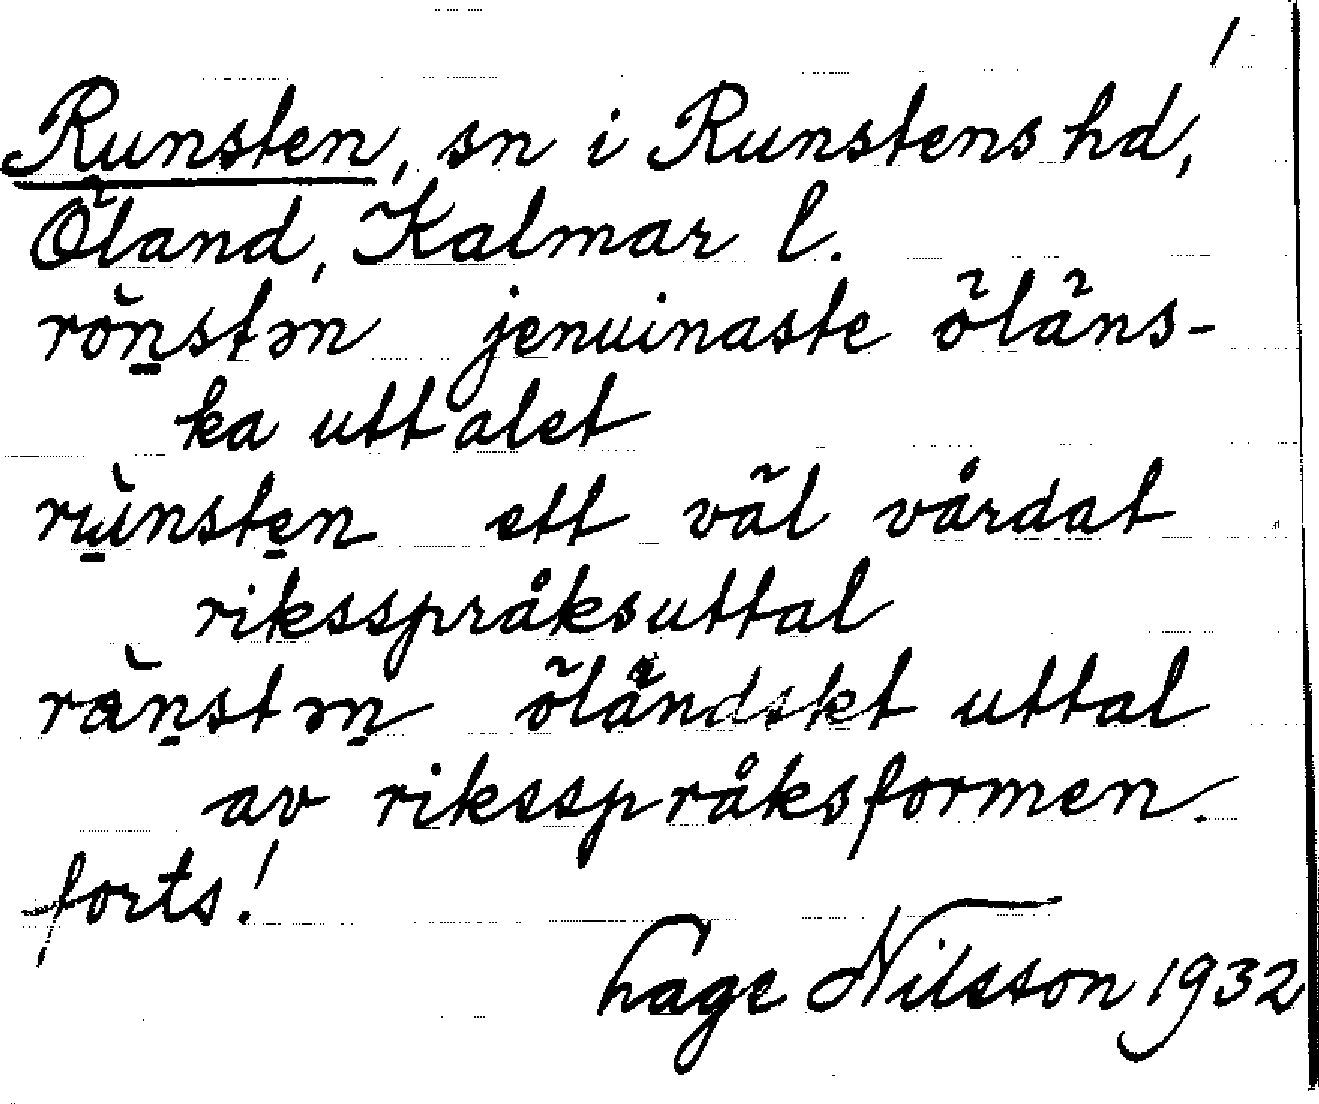 1
Runsten, sn i Runstens hd,
Öland, Kalmar l.
rònstən jenuinaste öläns-
ka uttalet
rùnsten ett väl vårdat
riksspråksuttal
rànstən öländskt uttal
av riksspråksformen.
forts!
Åage Nilsson 1932